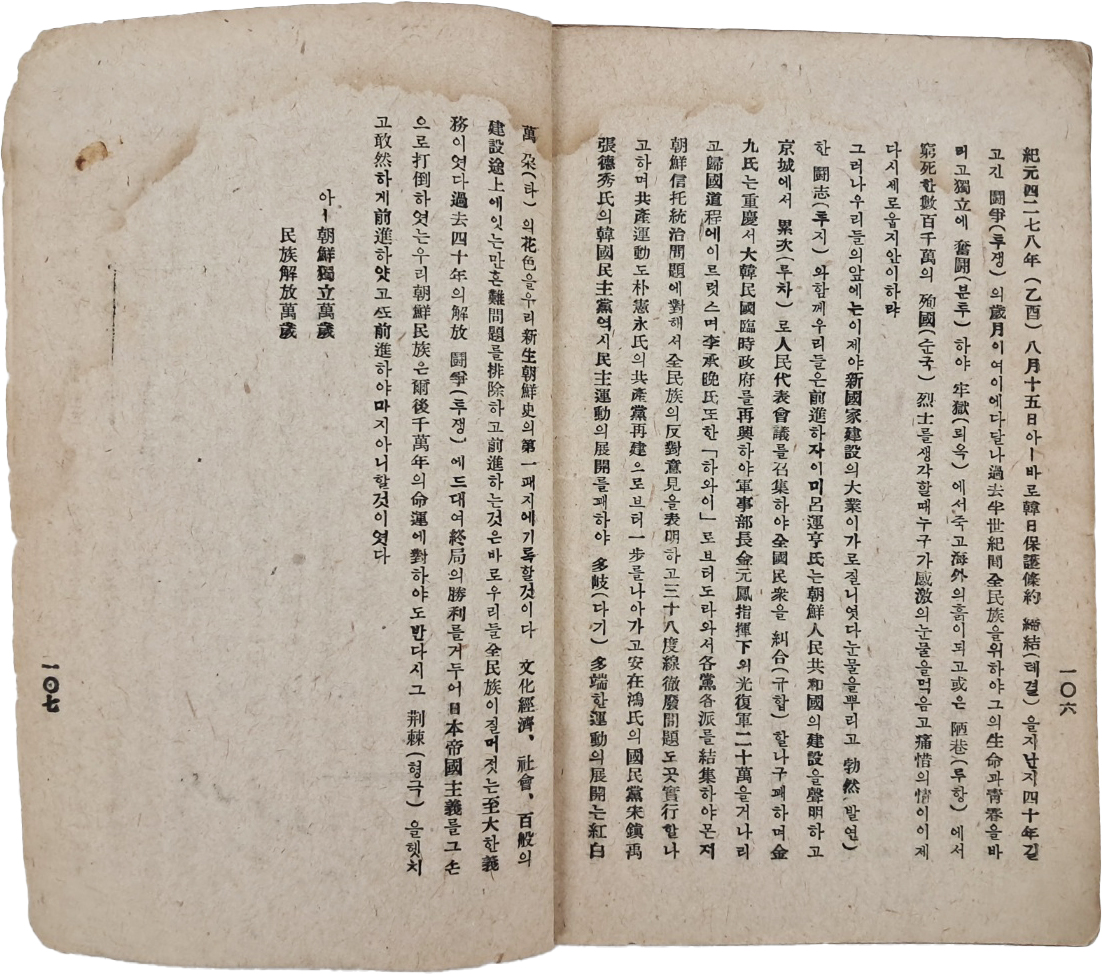 紀元四二七八年(乙酉)八月十五日아ー바로韓日保護條約 締結(톄결)을지난지四十年길
고긴 鬪爭(투쟁)의歲月이여이에다달나過去半世紀間全民族을위하야그의生命과靑春을바
려고獨立에 奮鬪(분투)하야 牢獄(뢰옥)에서죽고海外의흙이되고或은 陋巷(루항)에서
窮死한數百千萬의 殉國(순국)烈士를생각할때누구가感激의눈물을먹음고痛惜의情이이제
다시제로웁지안이하랴
그러나우리들의앞에는이제야新國家建設의大業이가로질니엿다눈물을뿌리고 勃然(발연)
한 鬪志(투지)와함께우리들은前進하자이미呂運亨氏는朝鮮人民共和國의建設을聲明하고
京城에서 累次(루차)로人民代表會議를召集하야全國民衆을 糾合(규합)할나구꽤하며金
九氏는重慶서大韓民國臨時政府를再興하야軍事部長金元鳳指揮下의光復軍二十萬을거나리
고歸國道程에이르럿스며李承晩氏또한「하와이」로브터도라와서各黨各派를結集하야몬저
朝鮮信托統治問題에對해서全民族의反對意見을表明하고三十八度線徹廢問題도곳實行할나
고하며共產運動도朴憲永氏의共產黨再建으로브터一步를나아가고安在鴻氏의國民黨宋鎭禹
張德秀氏의韓國民主黨역시民主運動의展開를꽤하야 多岐(다기)多端한運動의展開는紅白
一〇六
萬 朶(타)의花色을우리新生朝鮮史의第一패지에기록할것이다 文化經濟、社會、百般의
建設途上에잇는만흔難問題를排除하고前進하는것은바로우리들全民族이질머젓는至大한義
務이엿다過去四十年의解放 鬪爭(투쟁)에드대여終局의勝利를거두어日本帝國主義를그손
으로打倒하엿는우리朝鮮民族은爾後千萬年의命運에對하야도반다시그 荆棘(형극)을헷치
고敢然하게前進하얏고또前進하야마지아니할것이엿다
아ー朝鮮獨立萬歲
民族解放萬歲
一〇七